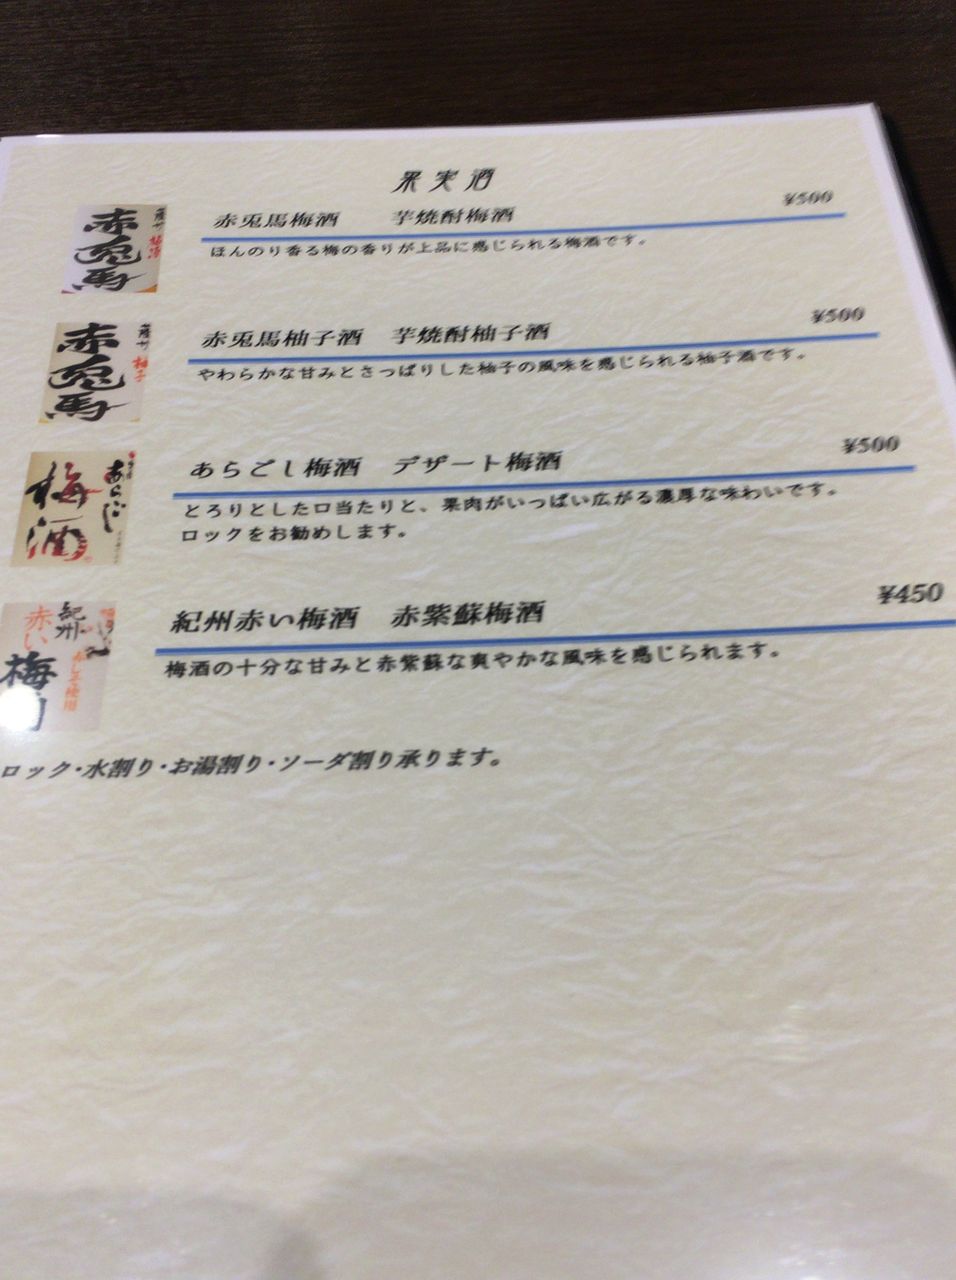 果実酒
赤兎馬梅酒　芋焼酎梅酒　¥500
ほんのり香る梅の香りが上品に感じられる梅酒です。
赤兎馬柚子酒　芋焼酎柚子酒　¥500
やわらかな甘みとさっぱりした柚子の風味を感じられる柚子酒です。
あらごし梅酒　デザート梅酒　¥500
とろりとした口当たりと、果肉がいっぱい広がる濃厚な味わいです。
ロックをお勧めします。
紀州赤い梅酒　赤紫蘇梅酒　¥450
梅酒の十分な甘みと赤紫蘇な爽やかな風味を感じられます。
ロック・水割り・お湯割り・ソーダ割り承ります。
赤兎馬
薩州
梅酒
赤兎馬
薩州
柚子
あらごし
梅酒
紀州
赤い
梅酒
赤しそ使用